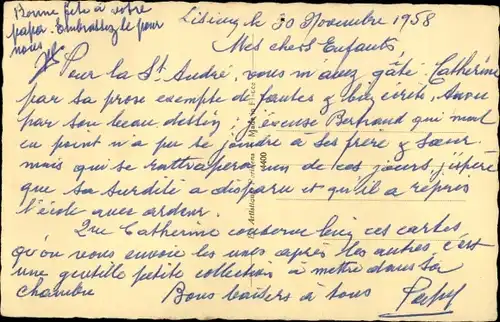 Bonne fête à votre
papa. Embrassez le pour
nous
Lisieux le 30 Novembre 1958
Mes chers Enfants,
Pour la St André, vous m'avez gâté. Catherine
par sa prose exempte de fautes & bien écrite,
par son beau dessin; j'excuse Bertrand qui mal
en point n'a pu se joindre à ses frère & sœur.
mais qui se rattrapera un de ces jours. J'espère
que sa surdité a disparu et qu'il a repris
l'école avec ardeur.
Que Catherine conserve bien ces cartes
qu'on vous envoie les unes après les autres c'est
une gentille petite collection à mettre dans sa
chambre Bons baisers à tous Papy
4400